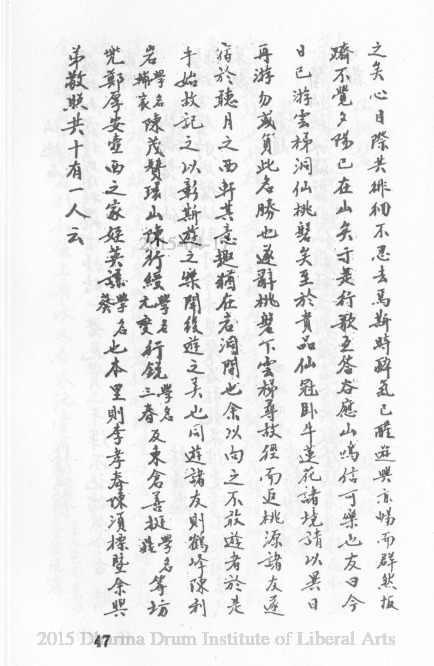 之矣心目際共徘徊不忍去焉斯時醉氣已醒遊興亦暢而群然扳
躋不覺夕陽已在山矣于是行歌互答谷應山鳴信可樂也友曰今
日已游雲梯洞仙桃磐矣至於貴品仙冠臥牛蓮花諸境請以異日
再游勿或負此名勝也遂辭桃磐下雲梯尋故徑而返桃源諸友遂
宿於聽月之西軒其意趣猶在岩洞間也余以向之不敢遊者於是
乎始故記之以彰斯遊之樂開後遊之美也同遊諸友則鶴峰陳利
岩學名埔哀陳茂贊環山陳行綬學名元燮行銳學名三春及東倉善挺學名等坊
兜鄭厚安壺西之家姪英謨學名葵也本里則李孝春陳須標暨余與
弟敬熙共十有一人云
47
2015 Dharma Drum Institute of Liberal Arts